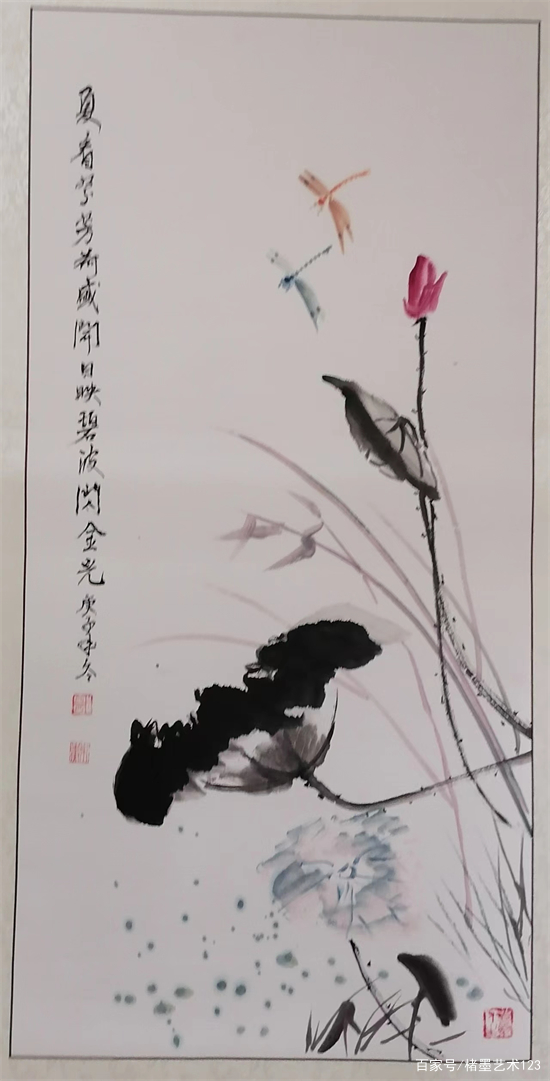 夏春紫芳荷盛開日映碧波閃金光 庚子年冬
百家号/楮墨艺术123